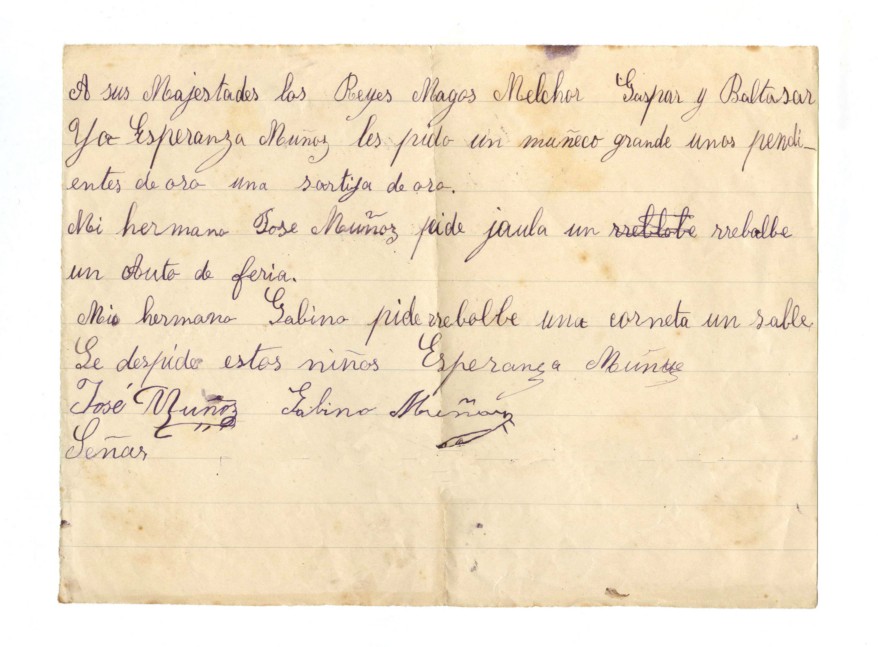 A sus Majestades los Reyes Magos Melchor Gaspar y Baltasar
Yo Esperanza Muñoz les pido un muñeco grande unos pendi-
entes de oro una sortija de oro.
Mi hermano Jose Muñoz pide jaula un rrebalbe
un Auto de feria.
Mio hermano Gabino pide rrebolbe una corneta un sable
Se despide estos niños Esperanza Muñoz
José Muñoz Gabino Muñoz
Señas